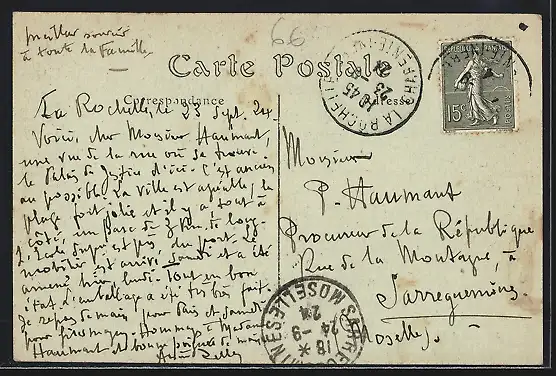 meilleur souvenir
à toute la famille
66
Carte Postale
Correspondance
Adresse
La Rochelle, le 23 Sept. 24
Voici, cher Monsieur Haumant,
une vue de la rue où se trouve
le Palais de Justice d'ici. C'est ancien
au possible. La ville est agréable, la
plage fort jolie et il y a tout à
côté un Parc de 2 Km. de long.
L'Ecole Supre est près du port. Le
mobilier est arrivé samedi et a été
amené hier, lundi. Tout en bon
état. L'emballage a été très bien fait.
Je repars demain pour Paris et samedi
pour . Hommages à Madame
Haumant et bonne poignée de main
Monsieur
P. Haumant
Procureur de la République
Rue de la Montagne, à
Sarreguemines
(Moselle)
LA ROCHELLE
CHARENTE-INFRE
18 45
23
24
REPUBLIQUE FRANÇAISE
15c
SARREGUEMINES
MOSELLE
18
24-9
24